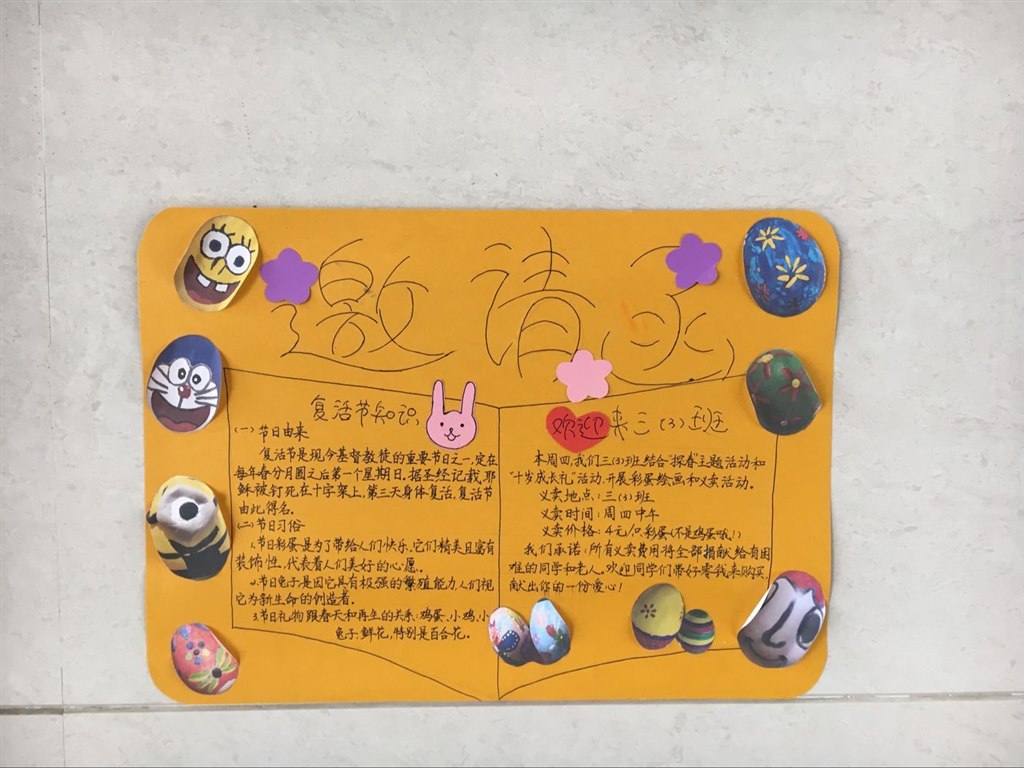 邀请函
复活节知识
(一)节日由来
复活节是现今基督教徒的重要节日之一,定在
每年春分月圆之后第一个星期日。据圣经记载,耶
稣被钉死在十字架上,第三天身体复活,复活节
由此得名。
(二)节日习俗
1.节日彩蛋是为了带给人们快乐,它们精美且富有
装饰性,代表着人们美好的心愿。
2.节日兔子是因它具有极强的繁殖能力,人们视
它为新生命的创造者。
3.节日礼物跟春天和再生的关系:鸡蛋、小鸡、小
兔子、鲜花,特别是百合花。
欢迎来三(3)班
本周四,我们三(3)班结合“探春”主题活动和
“十岁成长礼”活动,开展彩蛋绘画和义卖活动。
义卖地点:三(3)班
义卖时间:周四中午
义卖价格:4元/只彩蛋(不是鸡蛋哦!)
我们承诺:所有义卖费用将全部捐献给有困
难的同学和老人。欢迎同学们带好零钱来购买,
献出你的一份爱心!